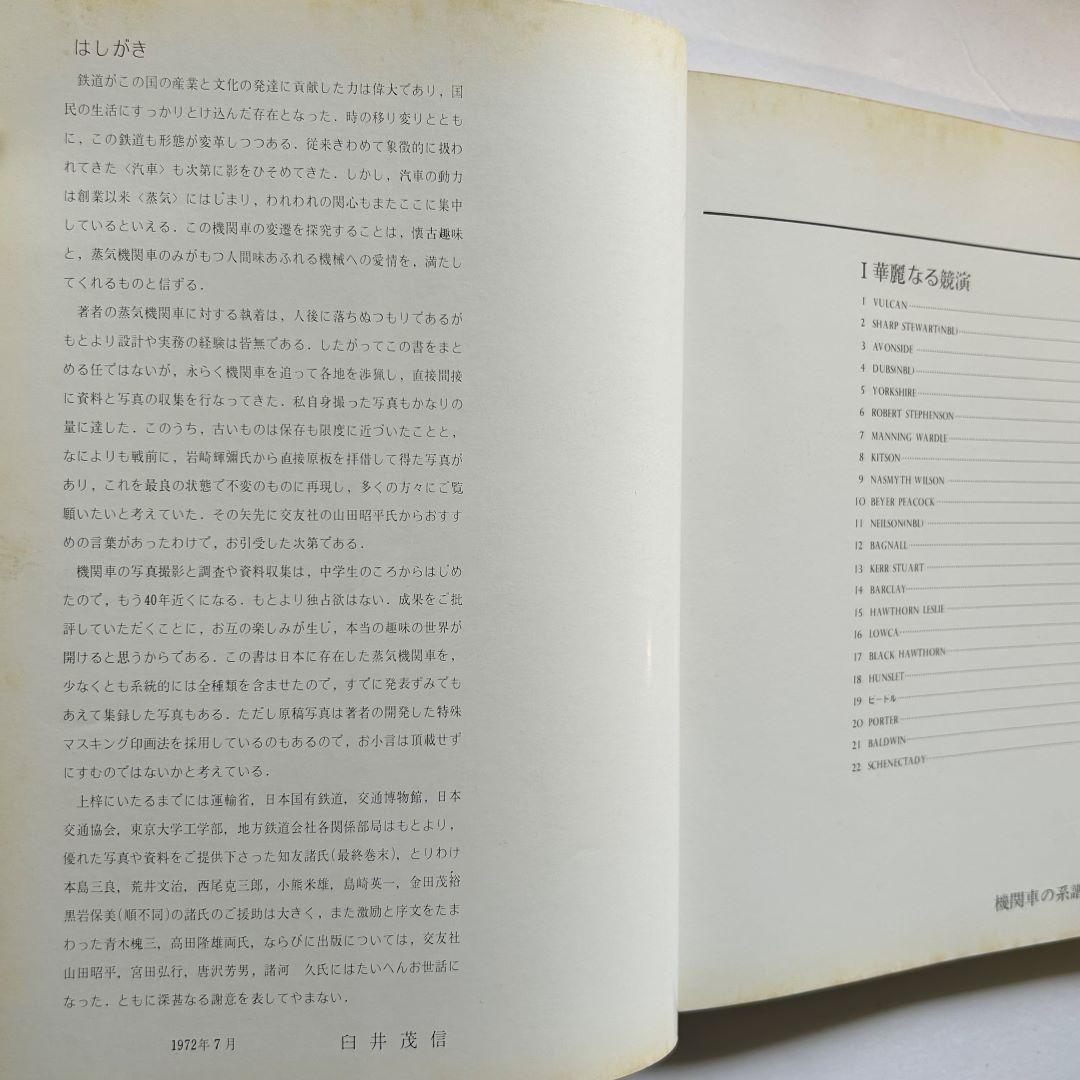 はしがき
鉄道がこの国の産業と文化の発達に貢献した力は偉大であり，国
民の生活にすっかりとけ込んだ存在となった．時の移り変りととも
に，この鉄道も形態が変革しつつある．従来きわめて象徴的に扱わ
れてきた〈汽車〉も次第に影をひそめてきた．しかし，汽車の動力
は創業以来〈蒸気〉にはじまり，われわれの関心もまたここに集中
しているといえる．この機関車の変遷を探究することは，懐古趣味
と，蒸気機関車のみがもつ人間味あふれる機械への愛情を，満たし
てくれるものと信ずる．
著者の蒸気機関車に対する執着は，人後に落ちぬつもりであるが
もとより設計や実務の経験は皆無である．したがってこの書をまと
める任ではないが，永らく機関車を追って各地を渉猟し，直接間接
に資料と写真の収集を行なってきた．私自身撮った写真もかなりの
量に達した．このうち，古いものは保存も限度に近づいたことと，
なによりも戦前に，岩崎輝彌氏から直接原板を拝借して得た写真が
あり，これを最良の状態で不変のものに再現し，多くの方々にご覧
願いたいと考えていた．その矢先に交友社の山田昭平氏からおすす
めの言葉があったわけで，お引受した次第である．
機関車の写真撮影と調査や資料収集は，中学生のころからはじめ
たので，もう40年近くになる．もとより独占欲はない．成果をご批
評していただくことに，お互の楽しみが生じ，本当の趣味の世界が
開けると思うからである．この書は日本に存在した蒸気機関車を，
少なくとも系統的には全種類を含ませたので，すでに発表ずみでも
あえて集録した写真もある．ただし原稿写真は著者の開発した特殊
マスキング印画法を採用しているのもあるので，お小言は頂載せず
にすむのではないかと考えている．
上梓にいたるまでには運輸省，日本国有鉄道，交通博物館，日本
交通協会，東京大学工学部，地方鉄道会社各関係部局はもとより，
優れた写真や資料をご提供下さった知友諸氏(最終巻末)，とりわけ
本島三良，荒井文治，西尾克三郎，小熊米雄，島崎英一，金田茂裕
黒岩保美(順不同)の諸氏のご援助は大きく，また激励と序文をたま
わった青木槐三，高田隆雄両氏，ならびに出版については，交友社
山田昭平，宮田弘行，唐沢芳男，諸河　久氏にはたいへんお世話に
なった．ともに深甚なる謝意を表してやまない．
1972年7月　臼井茂信
I 華麗なる競演
1 VULCAN
2 SHARP STEWART(NBL)
3 AVONSIDE
4 DUBS(NBL)
5 YORKSHIRE
6 ROBERT STEPHENSON
7 MANNING WARDLE
8 KITSON
9 NASMYTH WILSON
10 BEYER PEACOCK
11 NEILSON(NBL)
12 BAGNALL
13 KERR STUART
14 BARCLAY
15 HAWTHORN LESLIE
16 LOWCA
17 BLACK HAWTHORN
18 HUNSLET
19 ビートル
20 PORTER
21 BALDWIN
22 SCHENECTADY
機関車の系譜